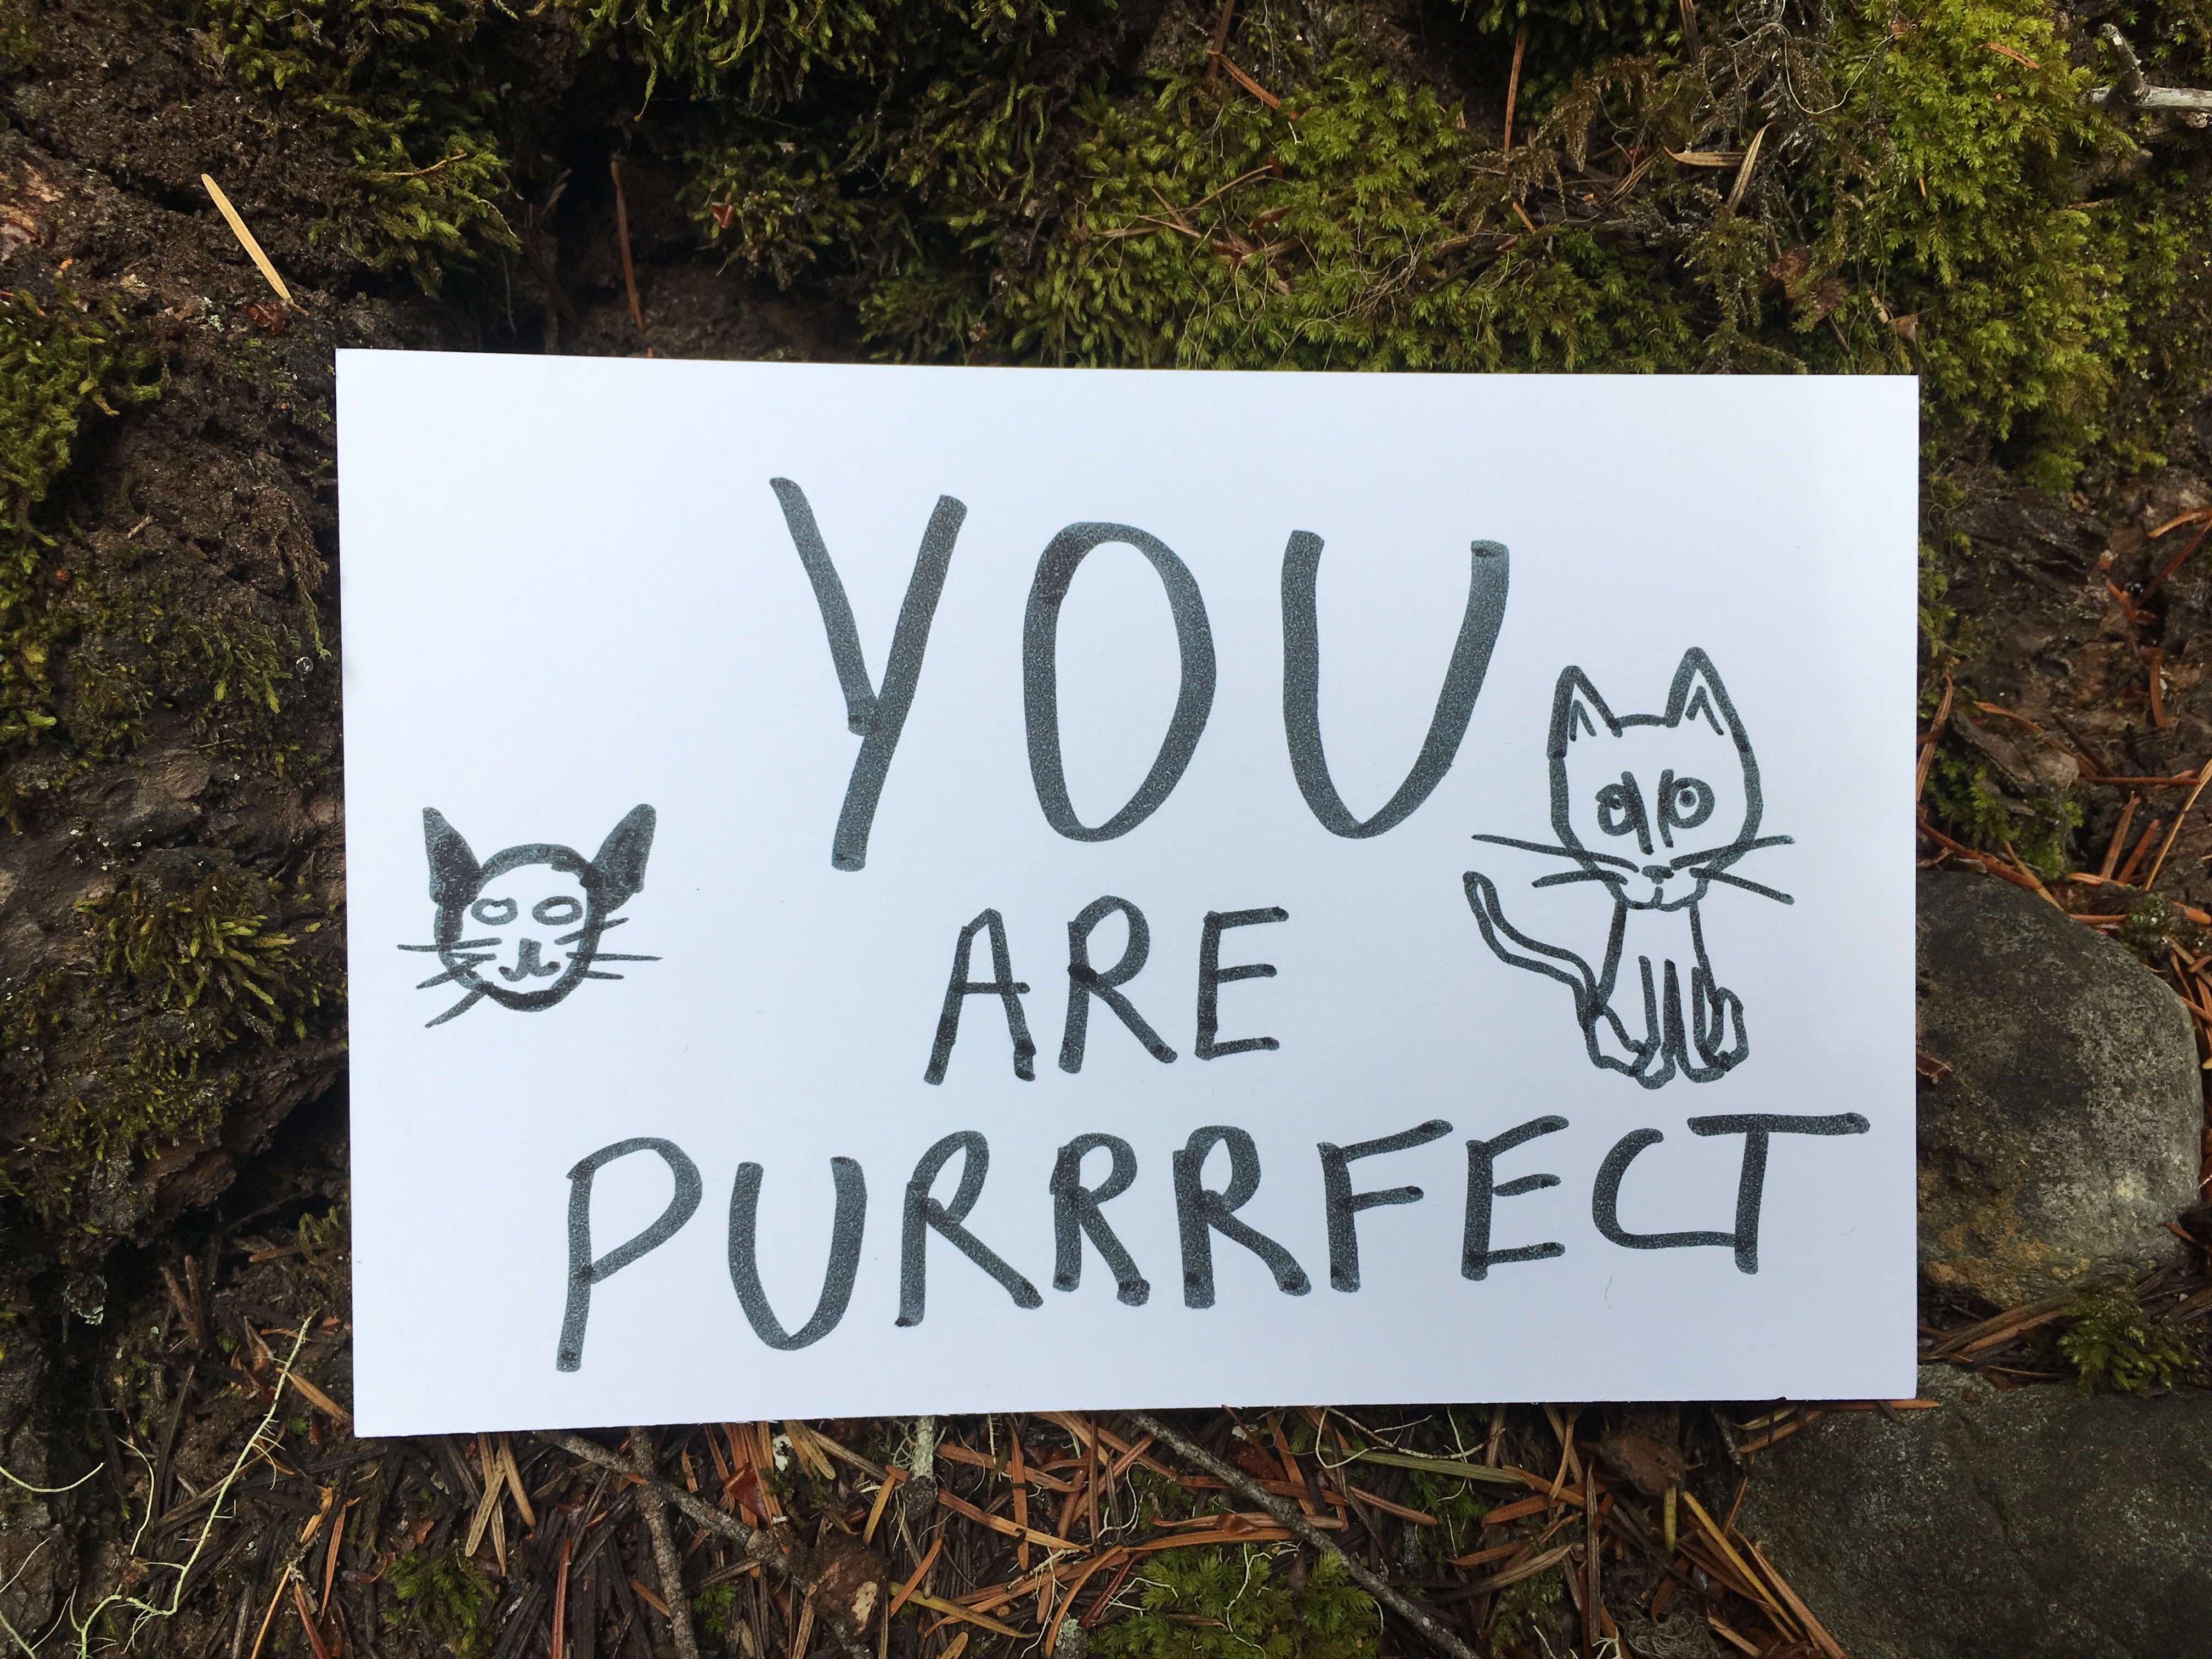 YOU
ARE
PURRRFECT